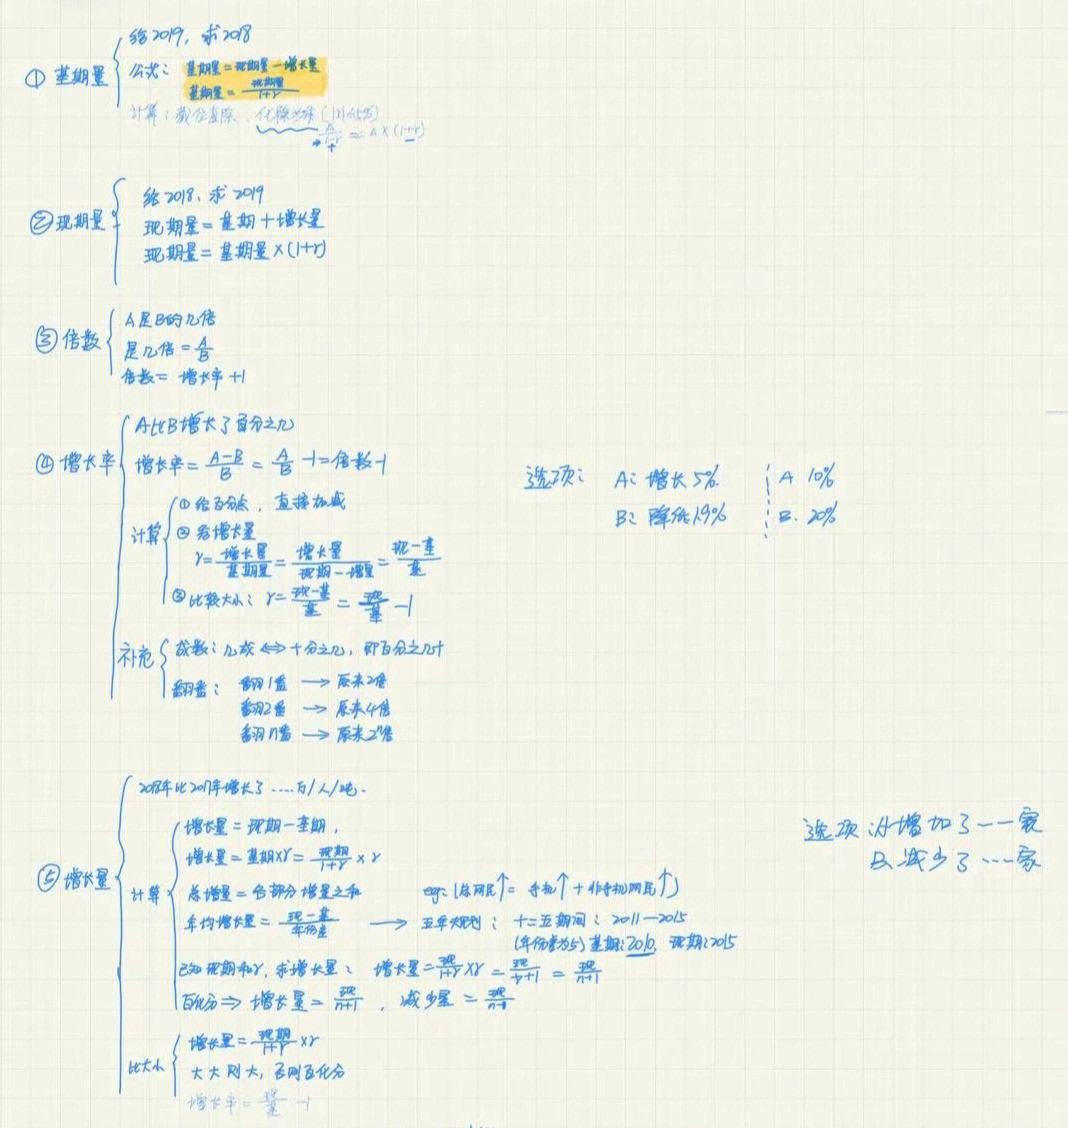 ① 基期量
给2019，求2018
公式：基期量=现期量-增长量
基期量=现期量/1+r
计算：截位直除、化除为乘（|r|≤5%）
A/1-r ≈ A×(1+r)
② 现期量
给2018、求2019
现期量=基期+增长量
现期量=基期量×(1+r)
③ 倍数
A是B的几倍
是几倍=A/B
倍数=增长率+1
④ 增长率
A比B增长了百分之几
增长率=A-B/B=A/B-1=倍数-1
计算
①给百分点，直接加减
②给增长量
r=增长量/基期量=增长量/现期-增量=现-基/基
③比较大小：r=现-基/基=现/基-1
补充
成数：几成⇔十分之几，即百分之几十
翻番：翻1番→原来2倍
翻2番→原来4倍
翻n番→原来2ⁿ倍
选项：A：增长5% A 10%
B：降低1.9% B. 20%
⑤ 增长量
2018年比2017年增长了....万/人/吨.
计算
增长量=现期-基期，
增长量=基期×r=现期/1+r×r
总增量=各部分增量之和 eg:(总网民↑=手机↑+非手机网民↑)
年均增长量=现-基/年份差→五年规划：十二五期间：2011—2015
(年份差为5)基期:2010，现期:2015
已知现期和r，求增长量：增长量=现/1+r×r=现/+1=现/n+1
百化分⇒增长量=现/n+1，减少量=现/n-1
比大小
增长量=现期/1+r×r
大大则大，否则百化分
增长率=现/基-1
选项：A增加了——家
B减少了…家